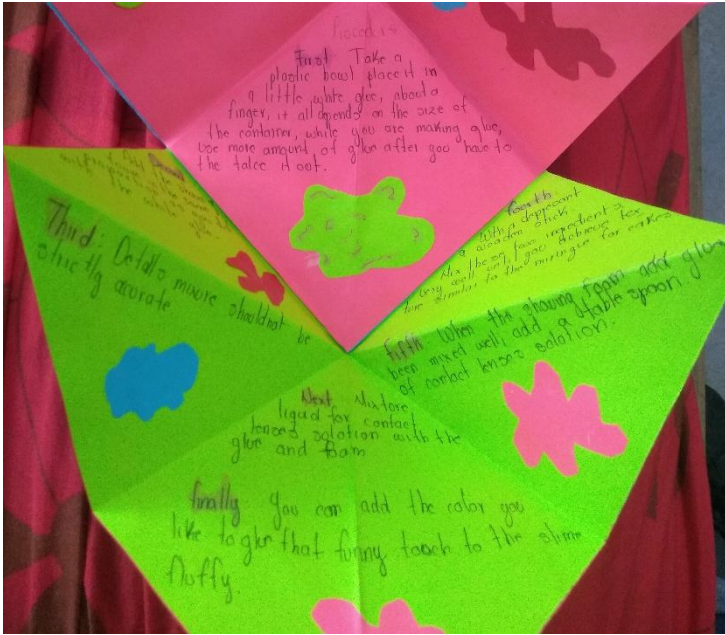 Procedure
First Take a
plastic bowl place it in
a little white glue, about a
finger, it all depends on the size of
the container, while you are making glue,
use more amount of glue after you have to
the talee it out.
Add the
the same
the white glue
Third: Detalls mixure should not be
strictly acurate
fourth
with a depresont
a wooden stick.
Mix these four ingredients
very well until you achieve tex
ture similar to the meringue for cakes
fifth When the shaving foam ader glue
been mixed well, add a table spoon.
of contact lenses solution.
Next Mixtore
liquid for contact
lenses solution with the
glue and foam
finally you can add the color you
like to give that funny toach to the slime
fluffy.